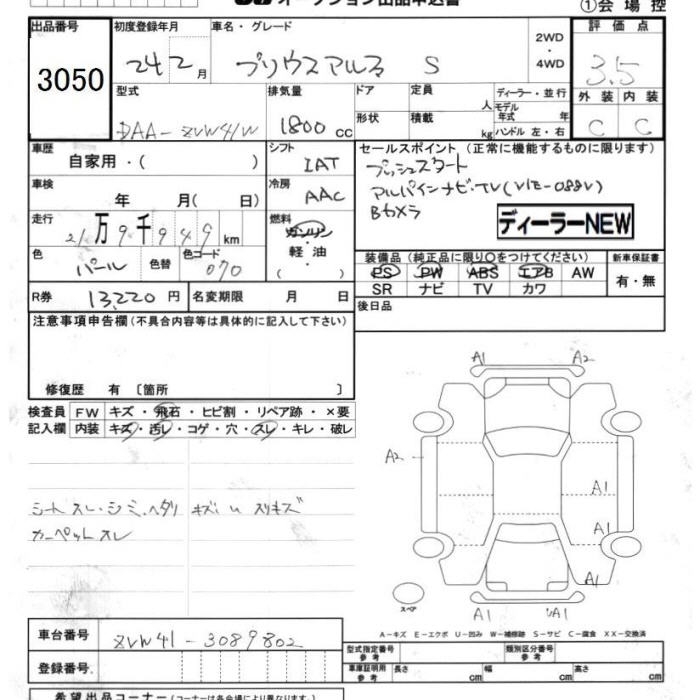 オークション出品申込書
①会場控
出品番号 初度登録年月 車名・グレード 評価点
3050 24 2 月 プリウスアルファ S 2WD・4WD 3.5
型式 排気量 ドア 定員 人 ディーラー・並行 外装 内装
DAA-ZVW41W 1800 cc 形状 積載 kg モデル年式 年 ハンドル 左・右 C C
車歴 シフト セールスポイント (正常に機能するものに限ります)
自家用・( ) IAT プッシュスタート
車検 冷房 アルパインナビ・TV(VIE-088V)
年 月( 日) AAC Bカメラ
走行 21万9千949km 燃料 ガソリン・軽油・( ) ディーラーNEW
色 パール 色替 色コード 070 装備品 (純正品に限り○をつけてください) 新車保証書
PS PW ABS エアB AW 有・無
SR ナビ TV カワ
R券 13,220 円 名変期限 月 日 後日品
注意事項申告欄 (不具合内容等は具体的に記入して下さい)
修復歴 有 〔箇所 〕
検査員 FW キズ・飛石・ヒビ割・リペア跡・×要
記入欄 内装 キズ・汚レ・コゲ・穴・スレ・キレ・破レ
A1 A2
A2
A1
A1
A1
A1 A1
シートスレ・シミ・ヘタリ キズ スリキズ
カーペットスレ
スペア
A-キズ E-エクボ U-凹み W-補修跡 S-サビ C-腐食 XX-交換済
車台番号 ZVW41-3089802 型式指定番号 参考 類別区分番号 参考
登録番号 車庫証明用 参考 長さ cm 幅 cm 高さ cm
希望出品コーナー (コーナーは各会場により異なります)